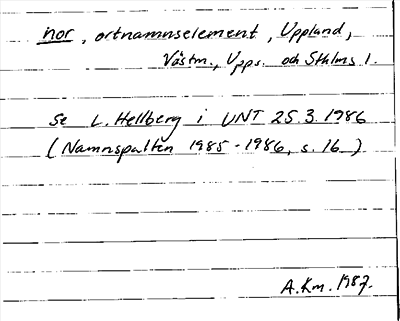 nor, ortnamnselement, Uppland,
Västm., Upps. och Sthlms l.
se L. Hellberg i UNT 25.3.1986
(Namnspalten 1985-1986, s. 16)
A.Km. 1987.